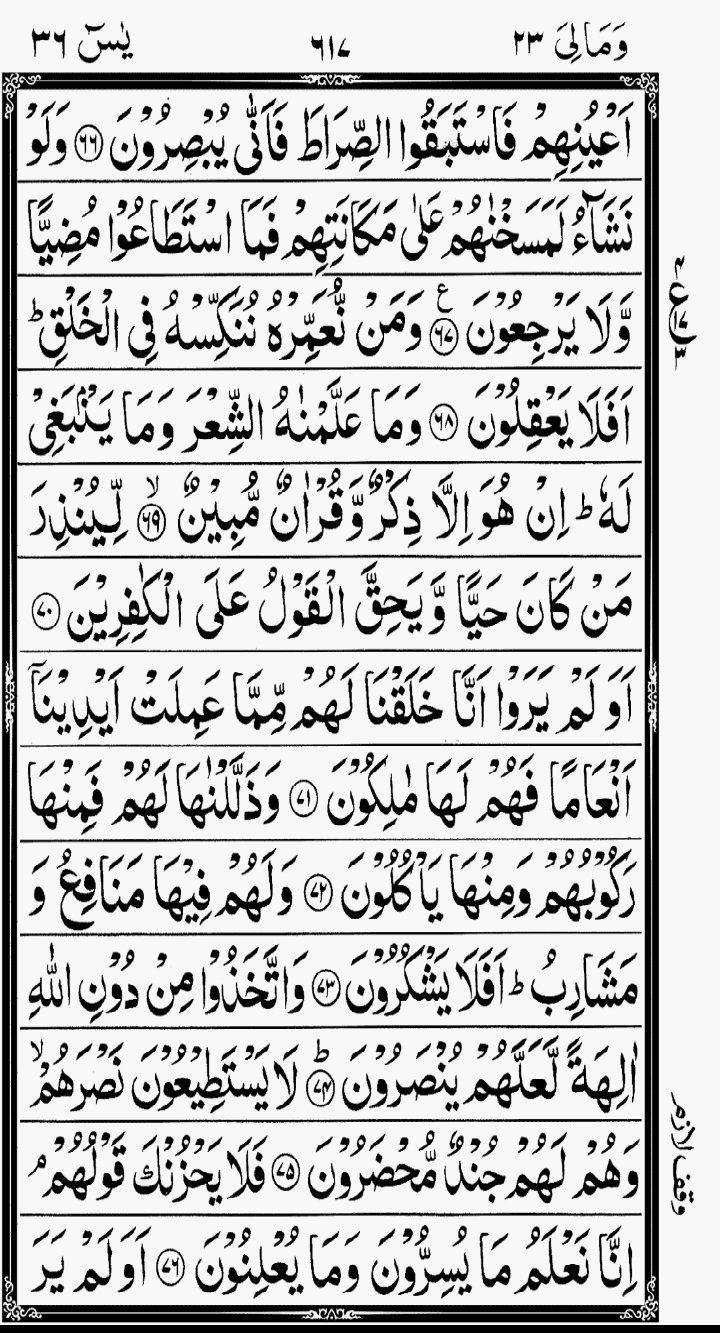 وَمَالِىَ ٢٣ ٦١٧ يٰسٓ ٣٦
اَعْيُنِهِمْ فَاسْتَبَقُوا الصِّرَاطَ فَاَنّٰى يُبْصِرُوْنَ ﴿٦٦﴾ وَلَوْ
نَشَآءُ لَمَسَخْنٰهُمْ عَلٰى مَكَانَتِهِمْ فَمَا اسْتَطَاعُوْا مُضِيًّا
وَّلَا يَرْجِعُوْنَ ﴿٦٧﴾ ع وَمَنْ نُّعَمِّرْهُ نُنَكِّسْهُ فِى الْخَلْقِ ؕ
اَفَلَا يَعْقِلُوْنَ ﴿٦٨﴾ وَمَا عَلَّمْنٰهُ الشِّعْرَ وَمَا يَنْۢبَغِىْ
لَهٗ ؕ اِنْ هُوَ اِلَّا ذِكْرٌ وَّقُرْاٰنٌ مُّبِيْنٌ ﴿٦٩﴾ ۙ لِّيُنْذِرَ
مَنْ كَانَ حَيًّا وَّيَحِقَّ الْقَوْلُ عَلَى الْكٰفِرِيْنَ ﴿٧٠﴾
اَوَلَمْ يَرَوْا اَنَّا خَلَقْنَا لَهُمْ مِّمَّا عَمِلَتْ اَيْدِيْنَاۤ
اَنْعَامًا فَهُمْ لَهَا مٰلِكُوْنَ ﴿٧١﴾ وَذَلَّلْنٰهَا لَهُمْ فَمِنْهَا
رَكُوْبُهُمْ وَمِنْهَا يَاْكُلُوْنَ ﴿٧٢﴾ وَلَهُمْ فِيْهَا مَنَافِعُ وَ
مَشَارِبُ ؕ اَفَلَا يَشْكُرُوْنَ ﴿٧٣﴾ وَاتَّخَذُوْا مِنْ دُوْنِ اللّٰهِ
اٰلِهَةً لَّعَلَّهُمْ يُنْصَرُوْنَ ﴿٧٤﴾ ؕ لَا يَسْتَطِيْعُوْنَ نَصْرَهُمْ ۙ
وَهُمْ لَهُمْ جُنْدٌ مُّحْضَرُوْنَ ﴿٧٥﴾ فَلَا يَحْزُنْكَ قَوْلُهُمْ ۘ
اِنَّا نَعْلَمُ مَا يُسِرُّوْنَ وَمَا يُعْلِنُوْنَ ﴿٧٦﴾ اَوَلَمْ يَرَ
وقف لازم